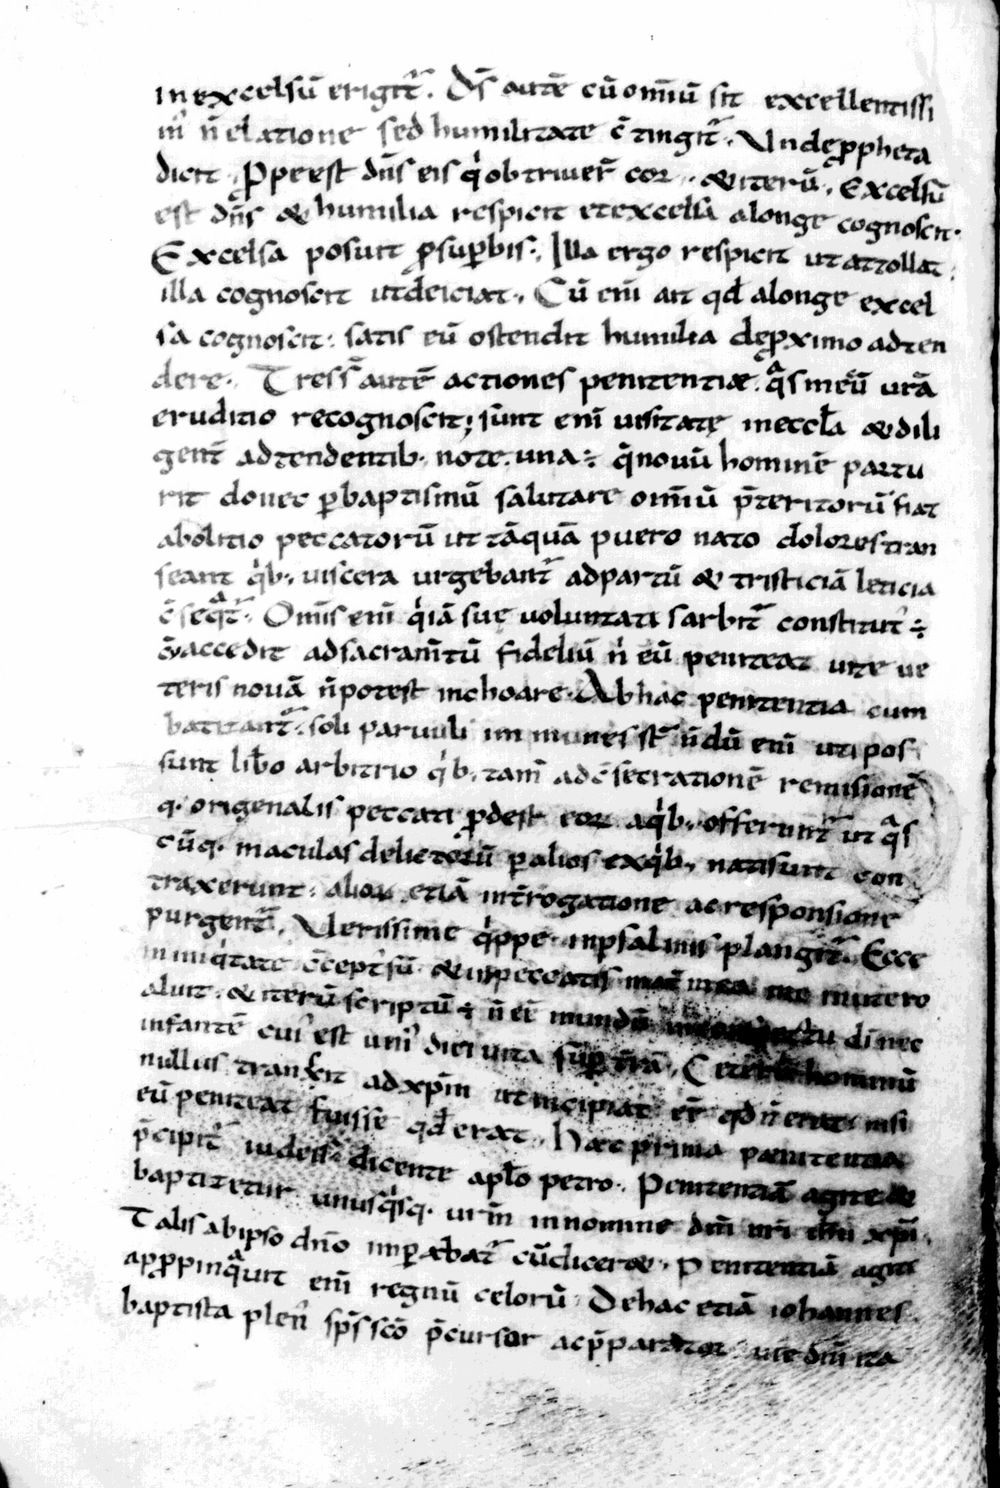 in excelsū erigit᷑. Dſ̄ autē cū om̄iū sit excellentissi
m᷒ n̄ elatione sed humilitate c̄tingit᷑. Unde ꝓpheta
dicit. Ꝓpe est dn̄s eis qⁱ obtriuer̄ cor. & iterū. Excelsū
est dn̄s & humilia respicit et excelsa alonge cognoscit.
Excelsa posuit ꝓ suꝑbis. Illa ergo respicit ut attollat;
illa cognoscit ut deiciat. Cū eni̅ ait qd̄ alonge excel
sa cognoscit. satis eū ostendit humilia de ꝓximo adten
dere. Tres s̄ autē actiones penitentiæ. qᵃs mecū urā
eruditio recognoscit; sunt eni̅ uisitatę in eccl̄a & dili
gent̄ adtendentib. note. una ÷ qᵉ nouū hominē partu
rit donec ꝑ baptismū salutare om̄iū p̄teritorū fiat
abolitio peccatorū ut tāquā puero nato dolores tran
seant qⁱb. uiscera urgebant᷑ ad partū & tristiciā leticia
c̄seqᵃt᷑. Om̄is eni̅ qⁱ iā sue voluntatis arbit᷑ constitut᷒ ÷
cū accedit ad sacram̄tū fideliū nⁱ eū peniteat uite ue
teris nouā n̄ potest inchoare. Ab hac penitentia cum
batizant᷑. soli paruuli immunes st̄ n̄dū eni̅ uti pos
sunt lib̄o arbitrio qⁱb. tam̄ ad c̄secrationē remisionē
q. origenalis peccati ꝓdest eoꝝ aqⁱb. offerunt᷑ ut qᵃs
cūq. maculas delictorū ꝑ alios exqⁱb. nati sunt con
traxerunt. alioꝝ etiā int̄rogatione ac responsione
purgent᷑. Uerissime qⁱppe in psalmis plangit᷑. Ecce
in iniqⁱtate c̄cept᷒ sū & in peccatis mat̄ mea me in utero
aluit. & iterū scriptū ÷ n̄ eē mundū in conspectu dī nec
infantē cui᷒ est uni᷒ diei uita suꝑ t̄rā. Ceterū hominū
nullus transit ad xp̄m ut incipiat eē qd̄ n̄ erat. nisi
eū peniteat fuisse qd̄ erat. Hæc prima pænitentia
p̄cipit᷑ iudeis dicente apl̄o petro. Penitentiā agite &
baptizetur unusqⁱsq. ur̄m in nomine dn̄i nr̄i ih̄u xp̄i.
Talis ab ipso dn̄o imꝑabat᷑ cū diceret. Penitentiā agite
apꝓpinqᵃuit eni̅ regnū celorū. De hac etiā iohannes
baptista plen᷒ sp̄s sc̄o p̄cursor ac p̄parator uie dn̄i ita